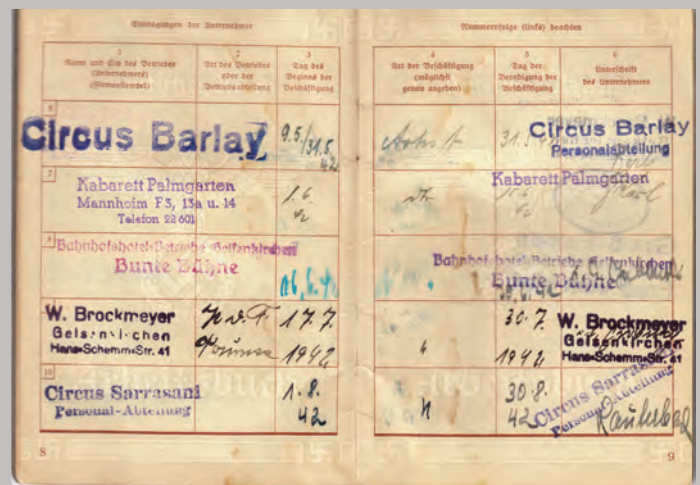 Eintragungen der Unternehmer
1
Name und Sitz des Betriebes
(Unternehmers)
(Firmenstempel)
2
Art des Betriebes
oder der
Betriebsabteilung
3
Tag des
Beginns der
Beschäftigung
6
Circus Barlay
9.5./31.5.
42
7
Kabarett Palmgarten
Mannheim F3, 13a u. 14
Telefon 22601
1.6.
42
8
Bahnhofshotel-Betriebe Gelsenkirchen
Bunte Bühne
16.6.4
W. Brockmeyer
Gelsenkirchen
Hans-Schemm-Str. 41
17.7.
1942
10
Circus Sarrasani
Personal-Abteilung
1.8.
42
8
Nummernfolge (links) beachten
4
Art der Beschäftigung
(möglichst
genau angeben)
5
Tag der
Beendigung der
Beschäftigung
6
Unterschrift
des Unternehmers
31.5.
Circus Barlay
Personalabteilung
Kabarett Palmgarten
Bahnhofshotel-Betriebe Gelsenkirchen
Bunte Bühne
30.7.
1942
W. Brockmeyer
Gelsenkirchen
Hans-Schemm-Str. 41
30.8.
42
Circus Sarrasani
Personal-Abteilung
9